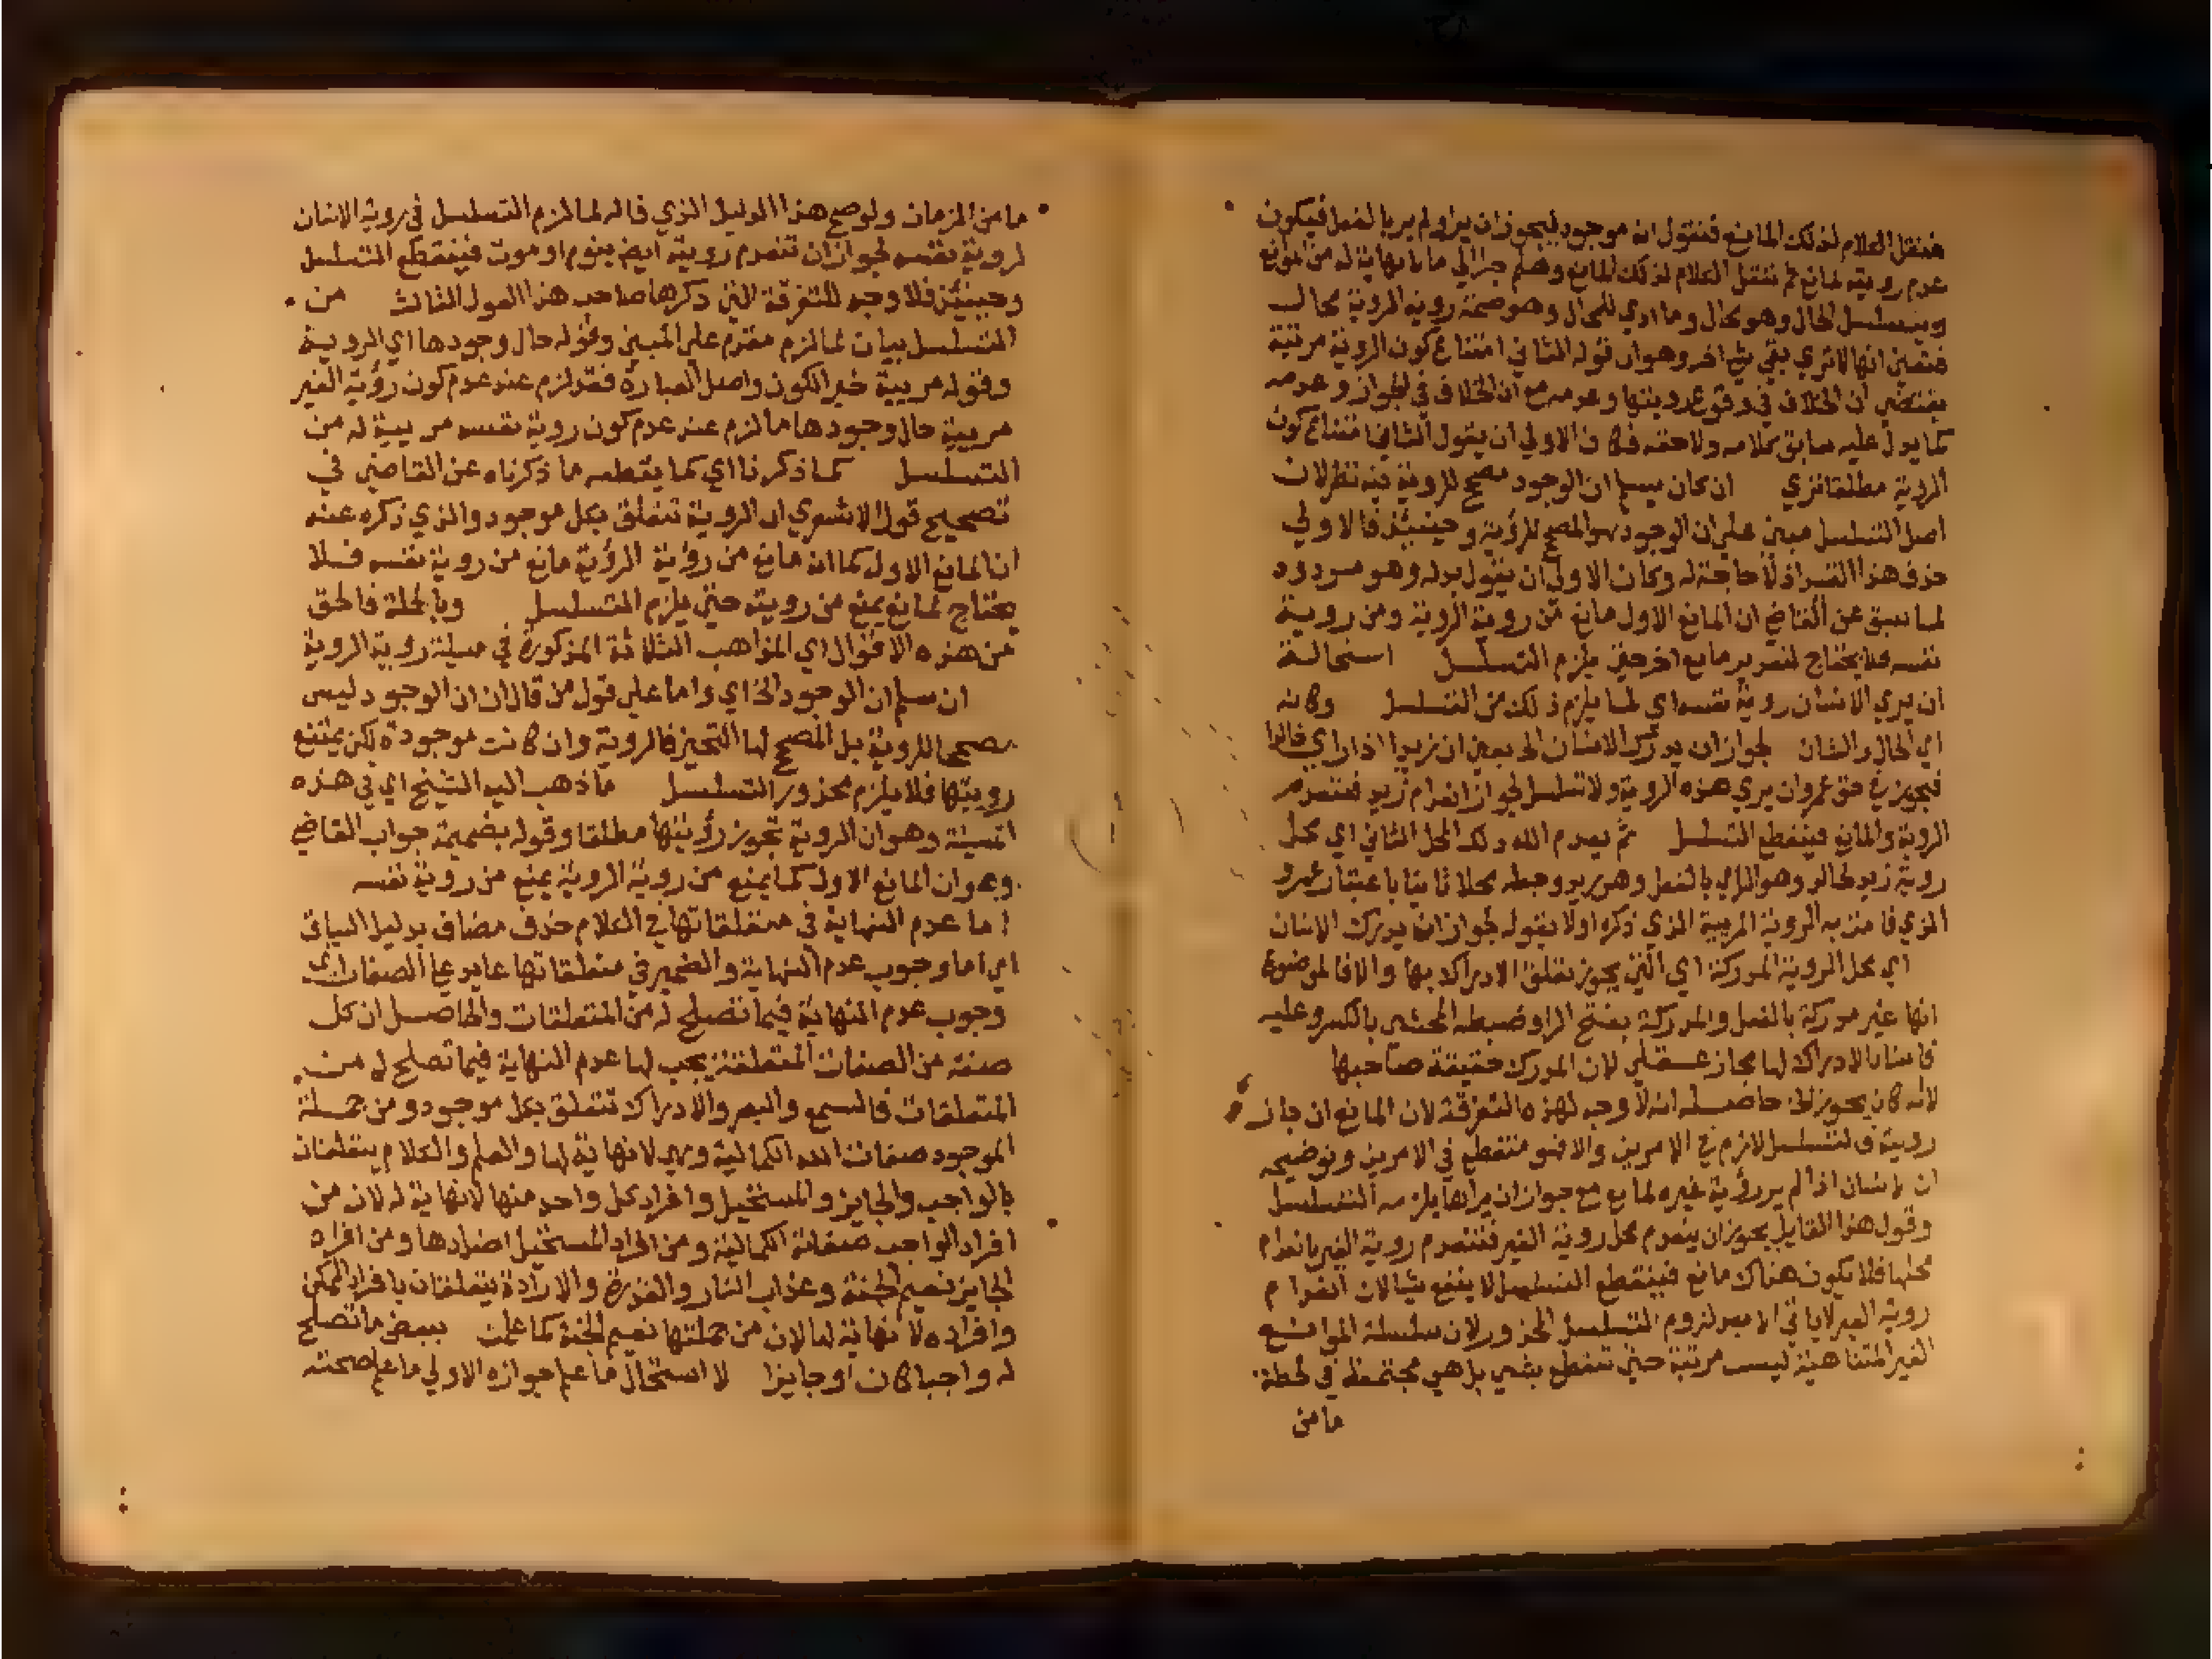 فننقل الكلام لذلك المانع فنقول انه موجود فيجوز ان يرا ولم ير بالفعل فيكون
عدم رويته لمانع ثم ننتقل الكلام لذلك المانع وهلم جرا الي ما لا نهاية له من الموانع
ويتسلسل الحال وهو محال وما ادي للمحال وهو صحة روية الروية محال
فتعين انها لا تري بقي شي اخر وهو ان قوله الثاني امتناع كون الروية مرئية
يقتضي ان الخلاف في وقوع رويتها وعدمه مع ان الخلاف في الجواز وعدمه
كما يدل عليه سابق كلامه ولاحقه فكان الاولي ان يقول الثاني امتناع كون
الروية مطلقا تري ان كان يسلم ان الوجود مصحح للروية فيه نظر لان
اصل التسلسل مبني علي ان الوجود هو المصحح للرؤية وحينئذ فالاولي
حذف هذا القسر اذ لا حاجة له وكان الاولي ان يقول بدله وهو مردود
لما سبق عن القاضي ان المانع الاول مانع من روية الروية ومن روية
نفسه فلا يحتاج لتقدير مانع اخر حتي يلزم التسلسل استحالة
ان يري الانسان روية نفسه اي لما يلزم ذلك من التسلسل وكانه
اي الحال والشان لجواز ان يدرك الانسان الخ يعني ان زيدا اذا راي خالدا
فيجوز في حق عمرو ان يري هذه الروية ولا تسلسل لجواز انعدام زيد فتنعدم
الروية والمانع فينقطع التسلسل ثم يعدم الله ذلك المحل الثاني اي محل
روية زيد لخالد وهو الراي بالفعل وهو زيد وجعله محلا ثانيا باعتبار عمرو
الذي قامت به الروية المرئية الذي ذكره اولا بقوله لجواز ان يدرك الانسان
اي محل الروية المدركة اي التي يجوز تعلق الادراك بها والا فالموضوع
انها غير مدركة بالفعل والمدركة بفتح الرا وضبطه المحشي بالكسر وعليه
فاسنا بالادراك لها مجاز عقلي لان المدرك حقيقة صاحبها
لانه كان يجوز الخ حاصله انه لا وجه لهذه التفرقة لان المانع ان جاز
رويته فالتسلسل لازم في الامرين والا فهو منقطع في الامرين وتوضيحه
ان الانسان اذا لم ير رؤية غيره لمانع مع جواز ان يراها يلزمه التسلسل
وقول هذا القايل يجوز ان ينعدم محل روية الغير فتنعدم روية الغير بانعدام
محلها فلا يكون هناك مانع فينقطع التسلسل لا ينفع شيا لان انعدام
روية الغير لا ياتي الا بعد لزوم التسلسل المحذور لان سلسلة الموانع
الغير المتناهية ليست مرتبة حتي تنقطع بشي بل هي مجتمعة في لحظة
ما من
ما من الزمان ولو صح هذا الدليل الذي قاله لما لزم التسلسل في روية الانسان
لروية نفسه لجواز ان تنعدم رويته ايضا بنوم او موت فينقطع التسلسل
وحينئذ فلا وجه للتفرقة التي ذكرها صاحب هذا القول الثالث من
التسلسل بيان لما لزم مقدم علي المبين وقوله حال وجودها اي الروية
وقوله مرئية خبر الكون واصل العبارة فقد لزم عند عدم كون رؤية الغير
مرئية حال وجودها ما لزم عند عدم كون روية نفسه مرئية له من
التسلسل كما ذكرنا اي كما يقطعه ما ذكرناه عن القاضي في
تصحيح قول الاشعري ان الروية تتعلق بكل موجود والذي ذكره عنه
ان المانع الاول كما انه مانع من رؤية الرؤية مانع من روية نفسه فلا
يحتاج لمانع يمنع من رويته حتي يلزم التسلسل وبالجملة فالحق
من هذه الاقوال اي المذاهب الثلاثة المذكورة في مسئلة روية الروية
ان سلم ان الوجود الخ اي واما علي قول من قال ان الوجود ليس
مصححا للروية بل المصحح لها التحيز فالروية وان كانت موجودة لكن يمتنع
رويتها فلا يلزم محذور التسلسل ما ذهب اليه الشيخ اي في هذه
المسئلة وهو ان الروية تجوز رؤيتها مطلقا وقوله بضميمة جواب القاضي
وهو ان المانع الاول كما يمنع من روية الروية يمنع من روية نفسه
اما عدم النهاية في متعلقاتها في الكلام حذف مضاف بدليل السياق
اي اما وجوب عدم النهاية والضمير في متعلقاتها عايد علي الصفات اي
وجوب عدم النهاية فيما تصلح له من المتعلقات والحاصل ان كل
صفة من الصفات المتعلقة يجب لها عدم النهاية فيما تصلح له من
المتعلقات فالسمع والبصر والادراك تتعلق بكل موجود ومن جملة
الموجود صفات الله الكمالية وهي لا نهاية لها والعلم والكلام يتعلقان
بالواجب والجايز والمستحيل وافراد كل واحد منها لا نهاية له لان من
افراد الواجب صفاته الكمالية ومن افراد المستحيل اضدادها ومن افراد
الجايز نعيم الجنة وعذاب النار والقدرة والارادة يتعلقان بافراد الممكن
وافراده لا نهاية لها لان من جملتها نعيم الجنة كما علمت ببعض ما تصلح
له واجبا كان او جايزا لا استحال ما علم جوازه الاولي ما علم صحته